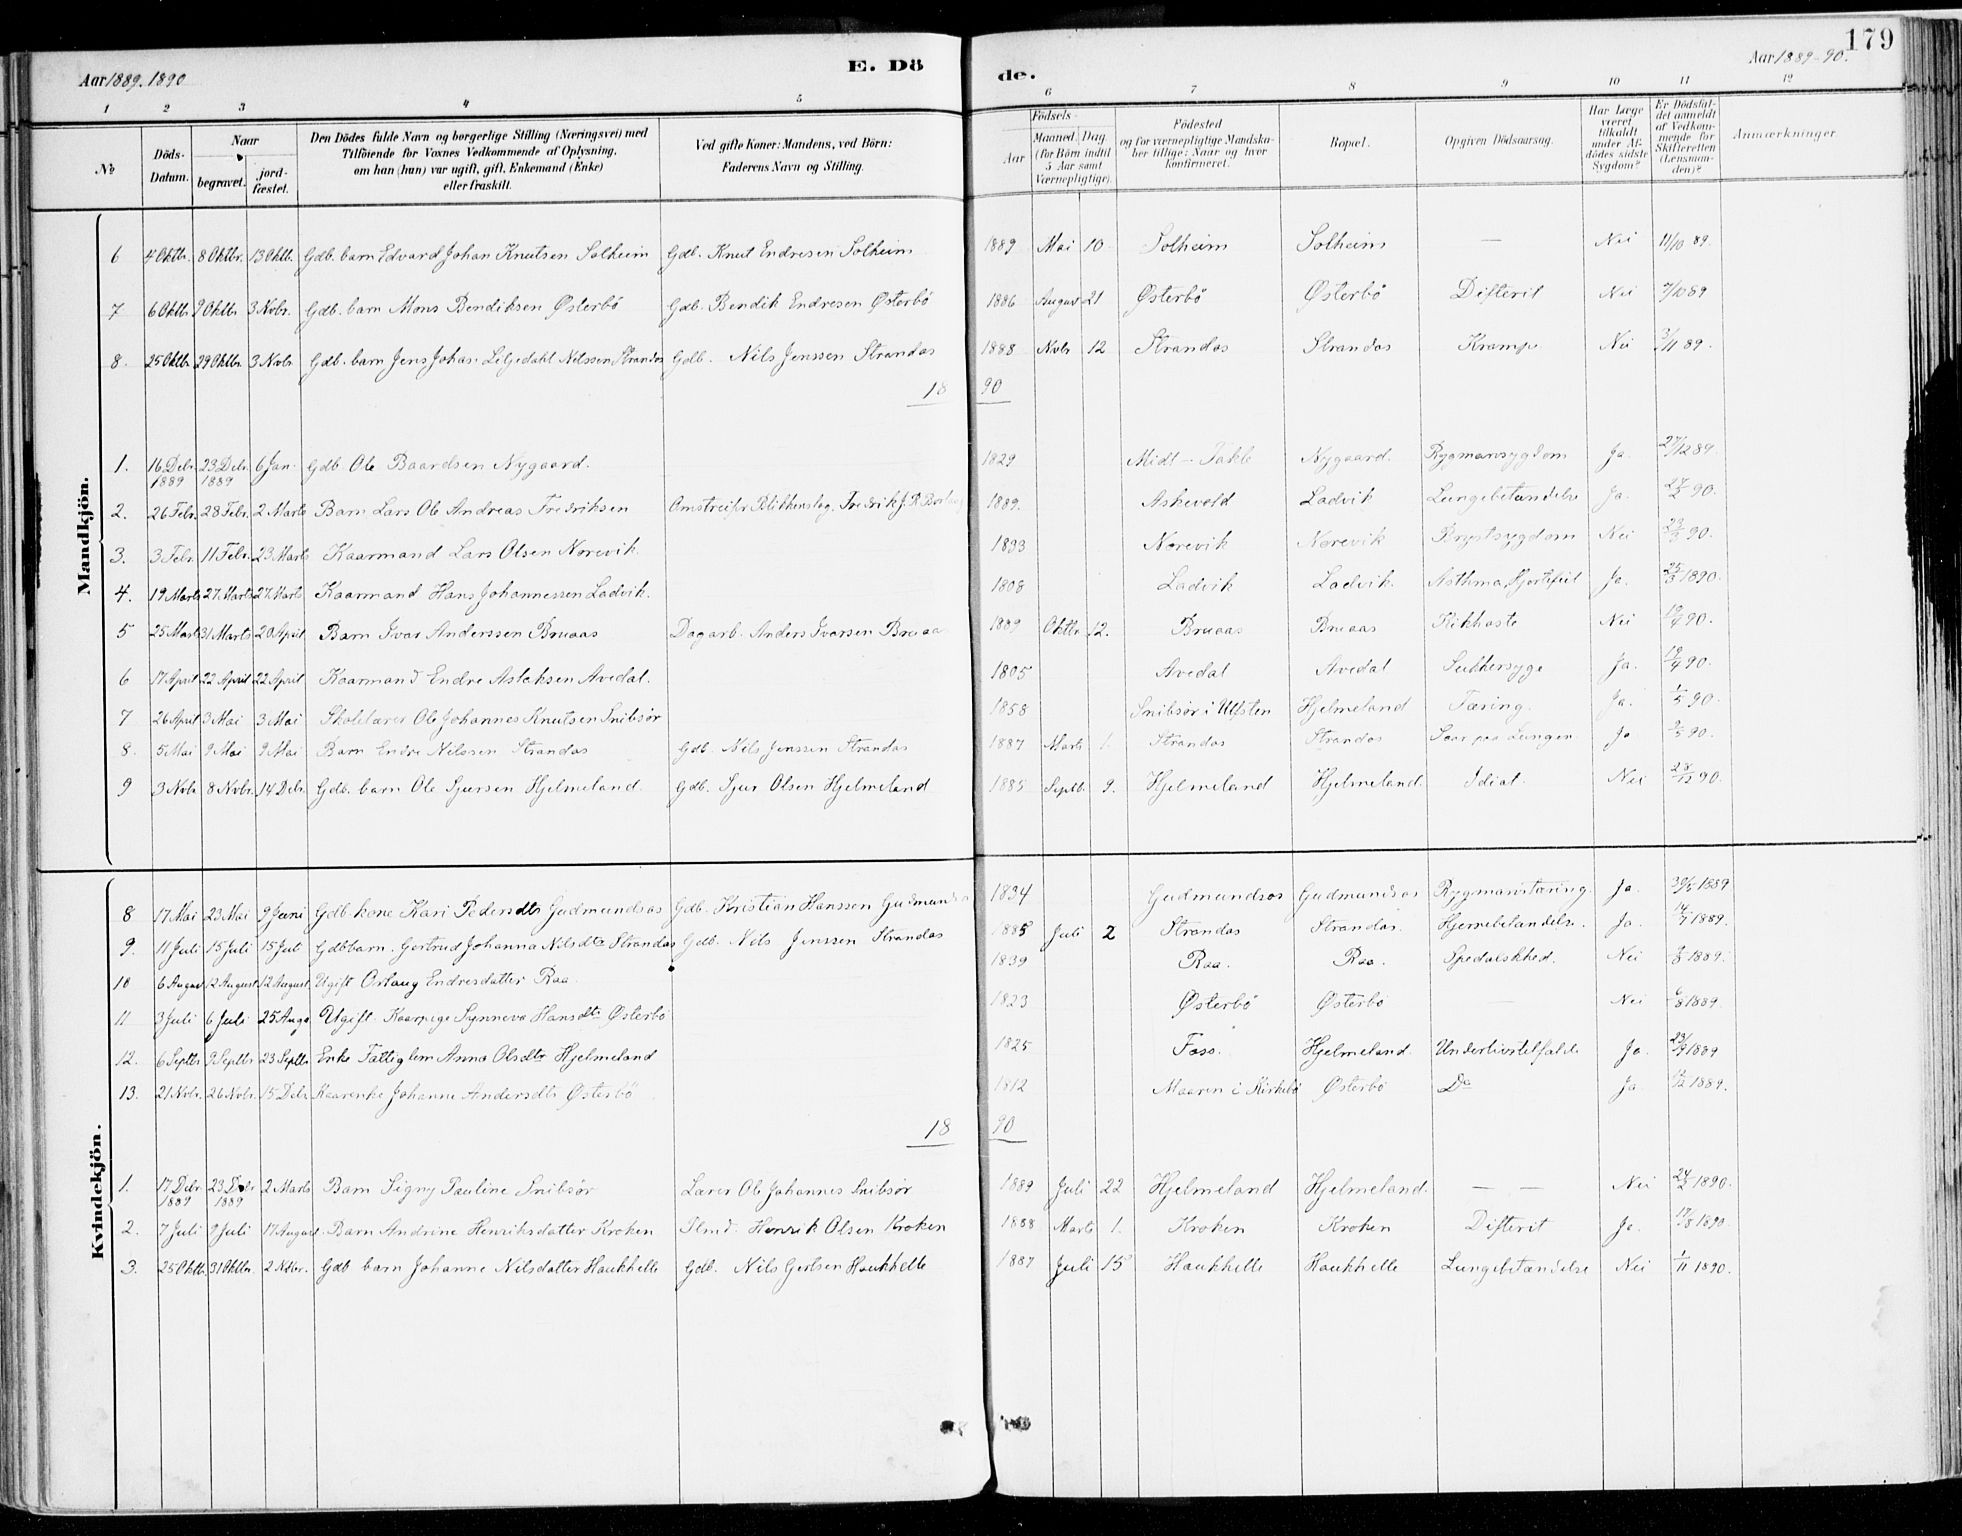 Aar 1889. 1890
E. Döde.
Aar 1889-90.
179
1 2 3 4 5 6 7 8 9 10 11 12
No
Döds-Datum.
Naar
begravet.
jord-fæstet.
Den Dödes fulde Navn og borgerlige Stilling (Næringsvei) med
Tilföiende for Voxnes Vedkommende af Oplysning,
om han (hun) var ugift, gift, Enkemand (Enke)
eller fraskilt.
Ved gifte Koner: Mandens, ved Börn:
Faderens Navn og Stilling.
Födsels-
Aar
Maaned. Dag
(for Börn indtil
5 Aar samt
Værnepligtige).
Födested
og for værnepligtige Mandska-
ber tillige: Naar og hvor
konfirmeret.
Bopæl.
Opgiven Dödsaarsag.
Har Læge
været
tilkaldt
under Af-
dödes sidste
Sygdom?
Er Dödsfal-
det anmeldt
af Vedkom-
mende for
Skifteretten
(Lensman-
den)?
Anmærkninger.
Mandkjön.
6 4 Oktbr. 8 Oktbr. 13 Oktb. Gdb. barn Edvard Johan Knutsen Solheim Gdb. Knut Endresen Solheim 1889 Mai 10 Solheim Solheim — Nei 11/10 89.
7 6 Oktbr 9 Oktbr 3 Nvbr. Gdb. barn Mons Bendiksen Østerbö Gdb. Bendik Endresen Østerbö 1886 August 21 Østerbö Østerbö Difterit Nei 7/10 89
8. 25 Oktbr. 29 Oktbr. 3 Nvbr. Gdb. barn Jens Johas Liljedahl Nilssen Strandos Gdb. Nils Jenssen Strandos 1888 Nvbr 12 Strandos Strandos Krampe Nei 3/11 89.
1890
1. 16 Debr. 1889 23 Debr. 1889 6 Jan. Gdb. Ole Baardsen Nygaard. 1829 Midt-Takle Nygaard. Rygmarvsygdom Ja. 27/12 89.
2. 26 Febr. 28 Febr. 2 Marts Barn Lars Ole Andreas Fredriksen Omstreifer Blikkenslag. Fredrik J. 1889. Askevold Ladvik Lungebetændelse Ja. 27/2 90.
3. 3 Febr. 11 Febr. 23 Marts Kaarmand Lars Olsen Norevik 1833 Norevik Norevik Brystsygdom Nei 23/3 90.
4. 19 Marts 27 Marts 27 Marts Kaarmand Hans Johannessen Ladvik. 1808 Ladvik Ladvik. Asthma, Hjertefeil Ja. 25/3 1890.
5 25 Marts 31 Marts 20 April Barn Ivar Anderssen Bruaas Dagarb. Anders Ivarsen Bruaas 1889 Oktbr 12. Bruaas Bruaas Kikhoste Nei 19/4 90.
6 17 April 22 April 22 April Kaarmand Endre Aslaksen Avedal. 1805 Avedal Avedal Sukkersyge Ja. 19/4 90.
7 26 April 3 Mai 3 Mai Skolelærer Ole Johannes Knutsen Snibsör 1858 Snibsör i Utsten Hjelmeland Tæring. Ja. 1/5 90.
8. 5 Mai 9 Mai 9 Mai Barn Endre Nilssen Strandos Gdb. Nils Jenssen Strandos 1887 Marts 1. Strandos Strandos Saar paa Lungen Ja 9/5 90.
9 3 Nvbr. 8 Nvbr. 14 Debr. Gdb. barn Ole Sjursen Hjelmeland Gdb. Sjur Olsen Hjelmeland 1885 Septb. 9. Hjelmeland Hjelmeland Idiot. Nei 28/12 90.
Kvindekjön.
8 17 Mai 23 Mai 9 Juni Gdb. kone Kari Pedersdtr Gudmundsos Gdb. Kristian Hanssen Gudmundsos 1834 Gudmundsos Gudmundsos Rygmarvstæring. Ja. 30/5 1889
9. 11 Juli 15 Juli 15 Jul Gdbbarn. Gertrud Johanna Nilsdtr Strandos Gdb. Nils Jenssen Strandos 1885 Juli 2 Strandos Strandos. Hjernebetændelse. Ja. 14/7 1889.
10 6 August 12 August 12 August Ugift Orlaug Endresdatter Raa 1839 Raa. Raa. Spedalskhed. Nei 8/8 1889.
11 3 Juli 6 Juli 25 Augs Ugift. Kaarpige Synneva Hansdtr Østerbö 1823 Østerbö Østerbö — Nei 6/8 1889.
12. 6 Septbr 9 Septbr. 23 Septbr. Enke Fattiglem Anna Olsdtr Hjelmeland 1825 Foss. Hjelmeland. Underlivstilfælde Ja. 23/9 1889
13. 21 Nvbr. 26 Nvbr. 15 Debr. Kaarenke Johanne Andersdtr Østerbö 1812 Maaren i Kirkebö Østerbö Do Ja 1/12 1889.
1890
1. 17 Debr 1889 23 Debr 1889 2 Marts Barn Signy Pauline Snibsör Lærer Ole Johannes Snibsör 1889 Juli 22 Hjelmeland Hjelmeland. — — Nei 24/2 1890.
2. 7 Juli 9 Juli 17 August. Barn Andrine Henriksdatter Kroken Henrik Olsen Kroken 1888 Marts 1. Kroken Kroken Difterit Ja. 17/8 1890.
3. 25 Oktb. 31 Oktbr. 2 Nvbr. Gdb barn Johanne Nilsdatter Haukhelle Gdb. Nils Gertsen Haukhelle 1887 Juli 15 Haukhelle Haukhelle Lungebetændelse Nei 1/11 1890.